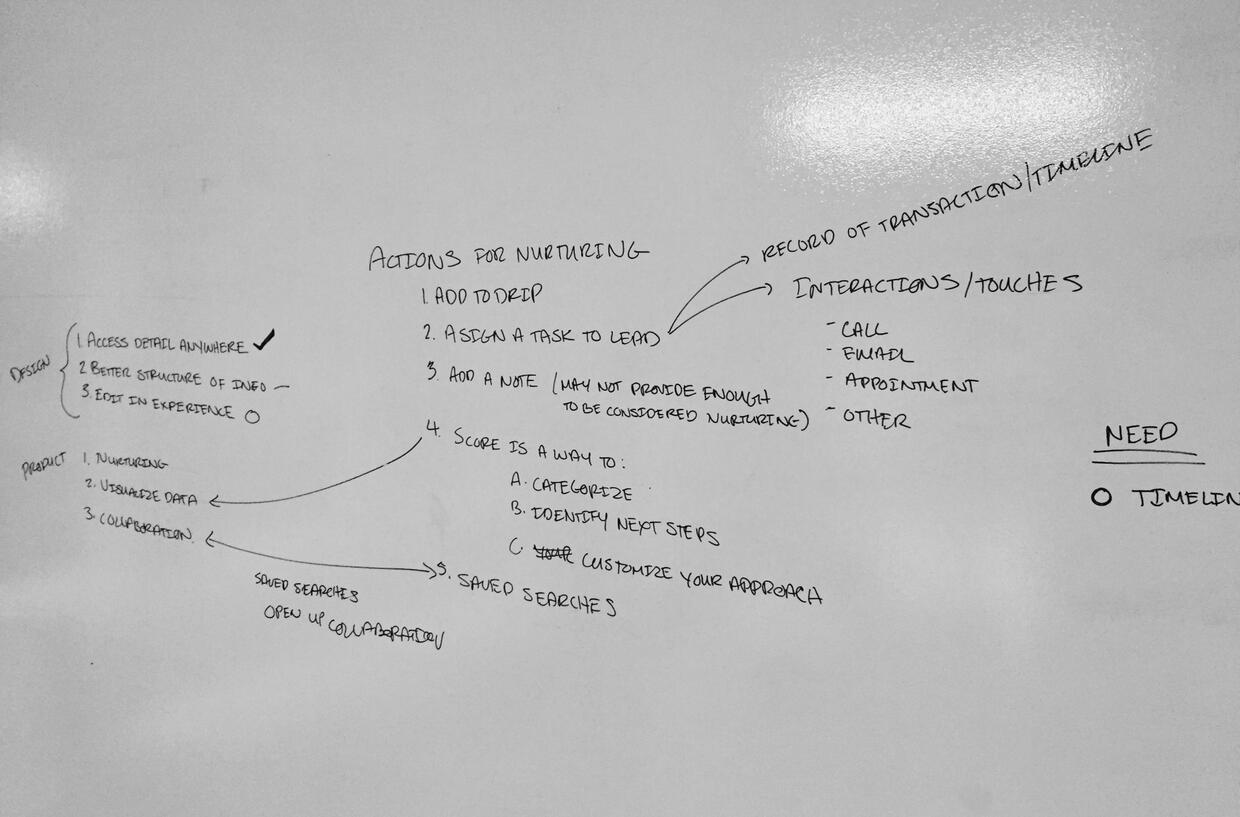 RECORD OF TRANSACTION/TIMELINE
ACTIONS FOR NURTURING
1. ADD TO DRIP
2. ASIGN A TASK TO LEAD
3. ADD A NOTE (MAY NOT PROVIDE ENOUGH
TO BE CONSIDERED NURTURING)
4. SCORE IS A WAY TO:
A. CATEGORIZE
B. IDENTIFY NEXT STEPS
C. CUSTOMIZE YOUR APPROACH
5. SAVED SEARCHES
INTERACTIONS/TOUCHES
- CALL
- EMAIL
- APPOINTMENT
- OTHER
DESIGN
1. ACCESS DETAIL ANYWHERE ✔
2 BETTER STRUCTURE OF INFO —
3. EDIT IN EXPERIENCE O
PRODUCT
1. NURTURING
2. VISUALIZE DATA
3. COLLABORATION.
SAVED SEARCHES
OPEN UP COLLABORATION
NEED
O TIMELIN